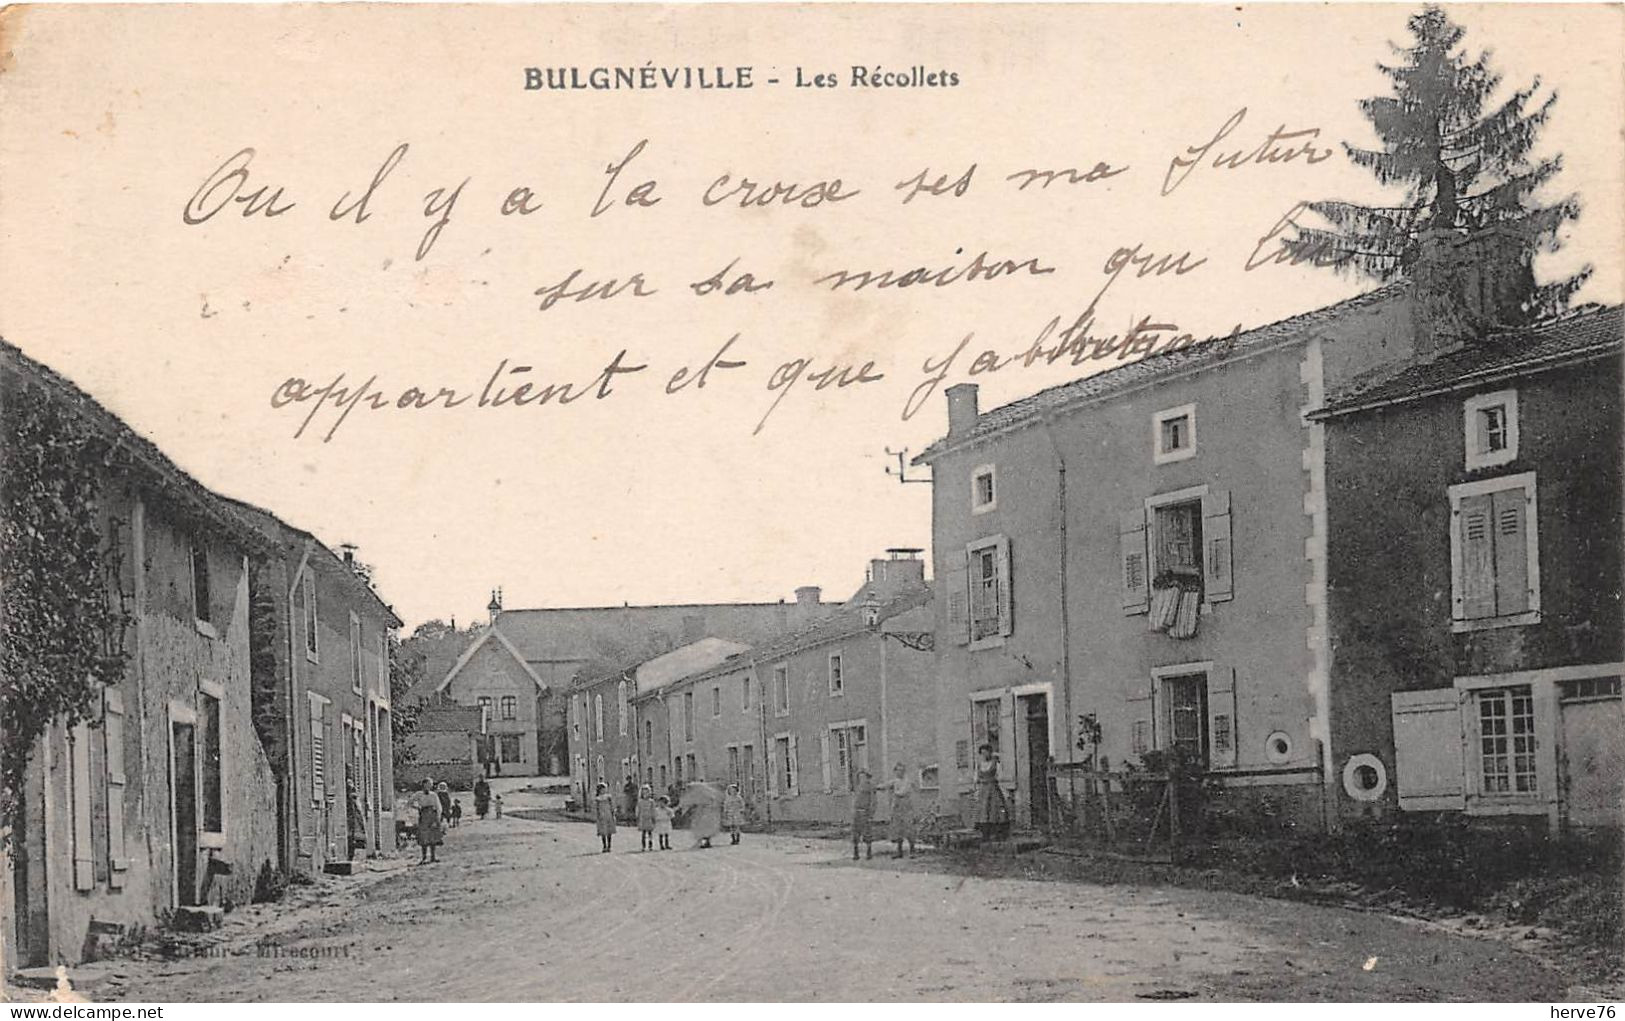 BULGNÉVILLE - Les Récollets
Ou il y a la croix ses ma futur
sur sa maison qui lui
appartient et que j'abitrai
Mirecourt
delcampe.net
herve76